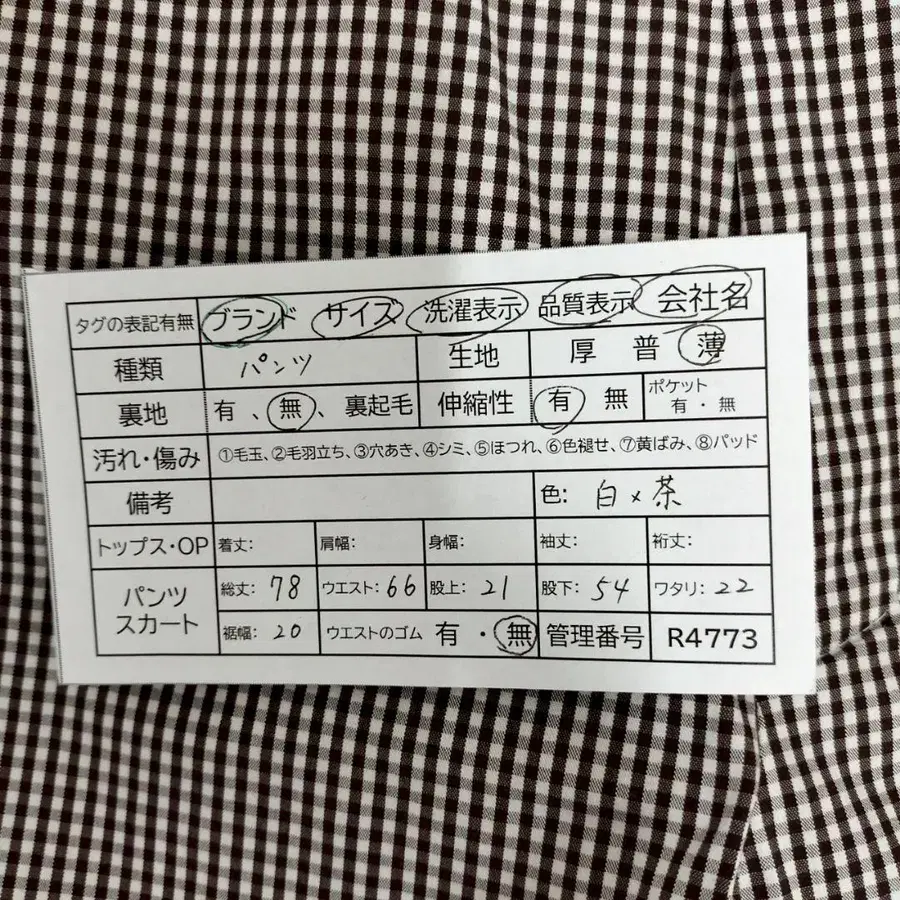 タグの表記有無 ブランド サイズ 洗濯表示 品質表示 会社名
種類 パンツ 生地 厚 普 薄
裏地 有、無、裏起毛 伸縮性 有 無 ポケット 有・無
汚れ・傷み ①毛玉、②毛羽立ち、③穴あき、④シミ、⑤ほつれ、⑥色褪せ、⑦黄ばみ、⑧パッド
備考 色: 白×茶
トップス・OP 着丈: 肩幅: 身幅: 袖丈: 裄丈:
パンツ スカート 総丈: 78 ウエスト: 66 股上: 21 股下: 54 ワタリ: 22
裾幅: 20 ウエストのゴム 有・無 管理番号 R4773